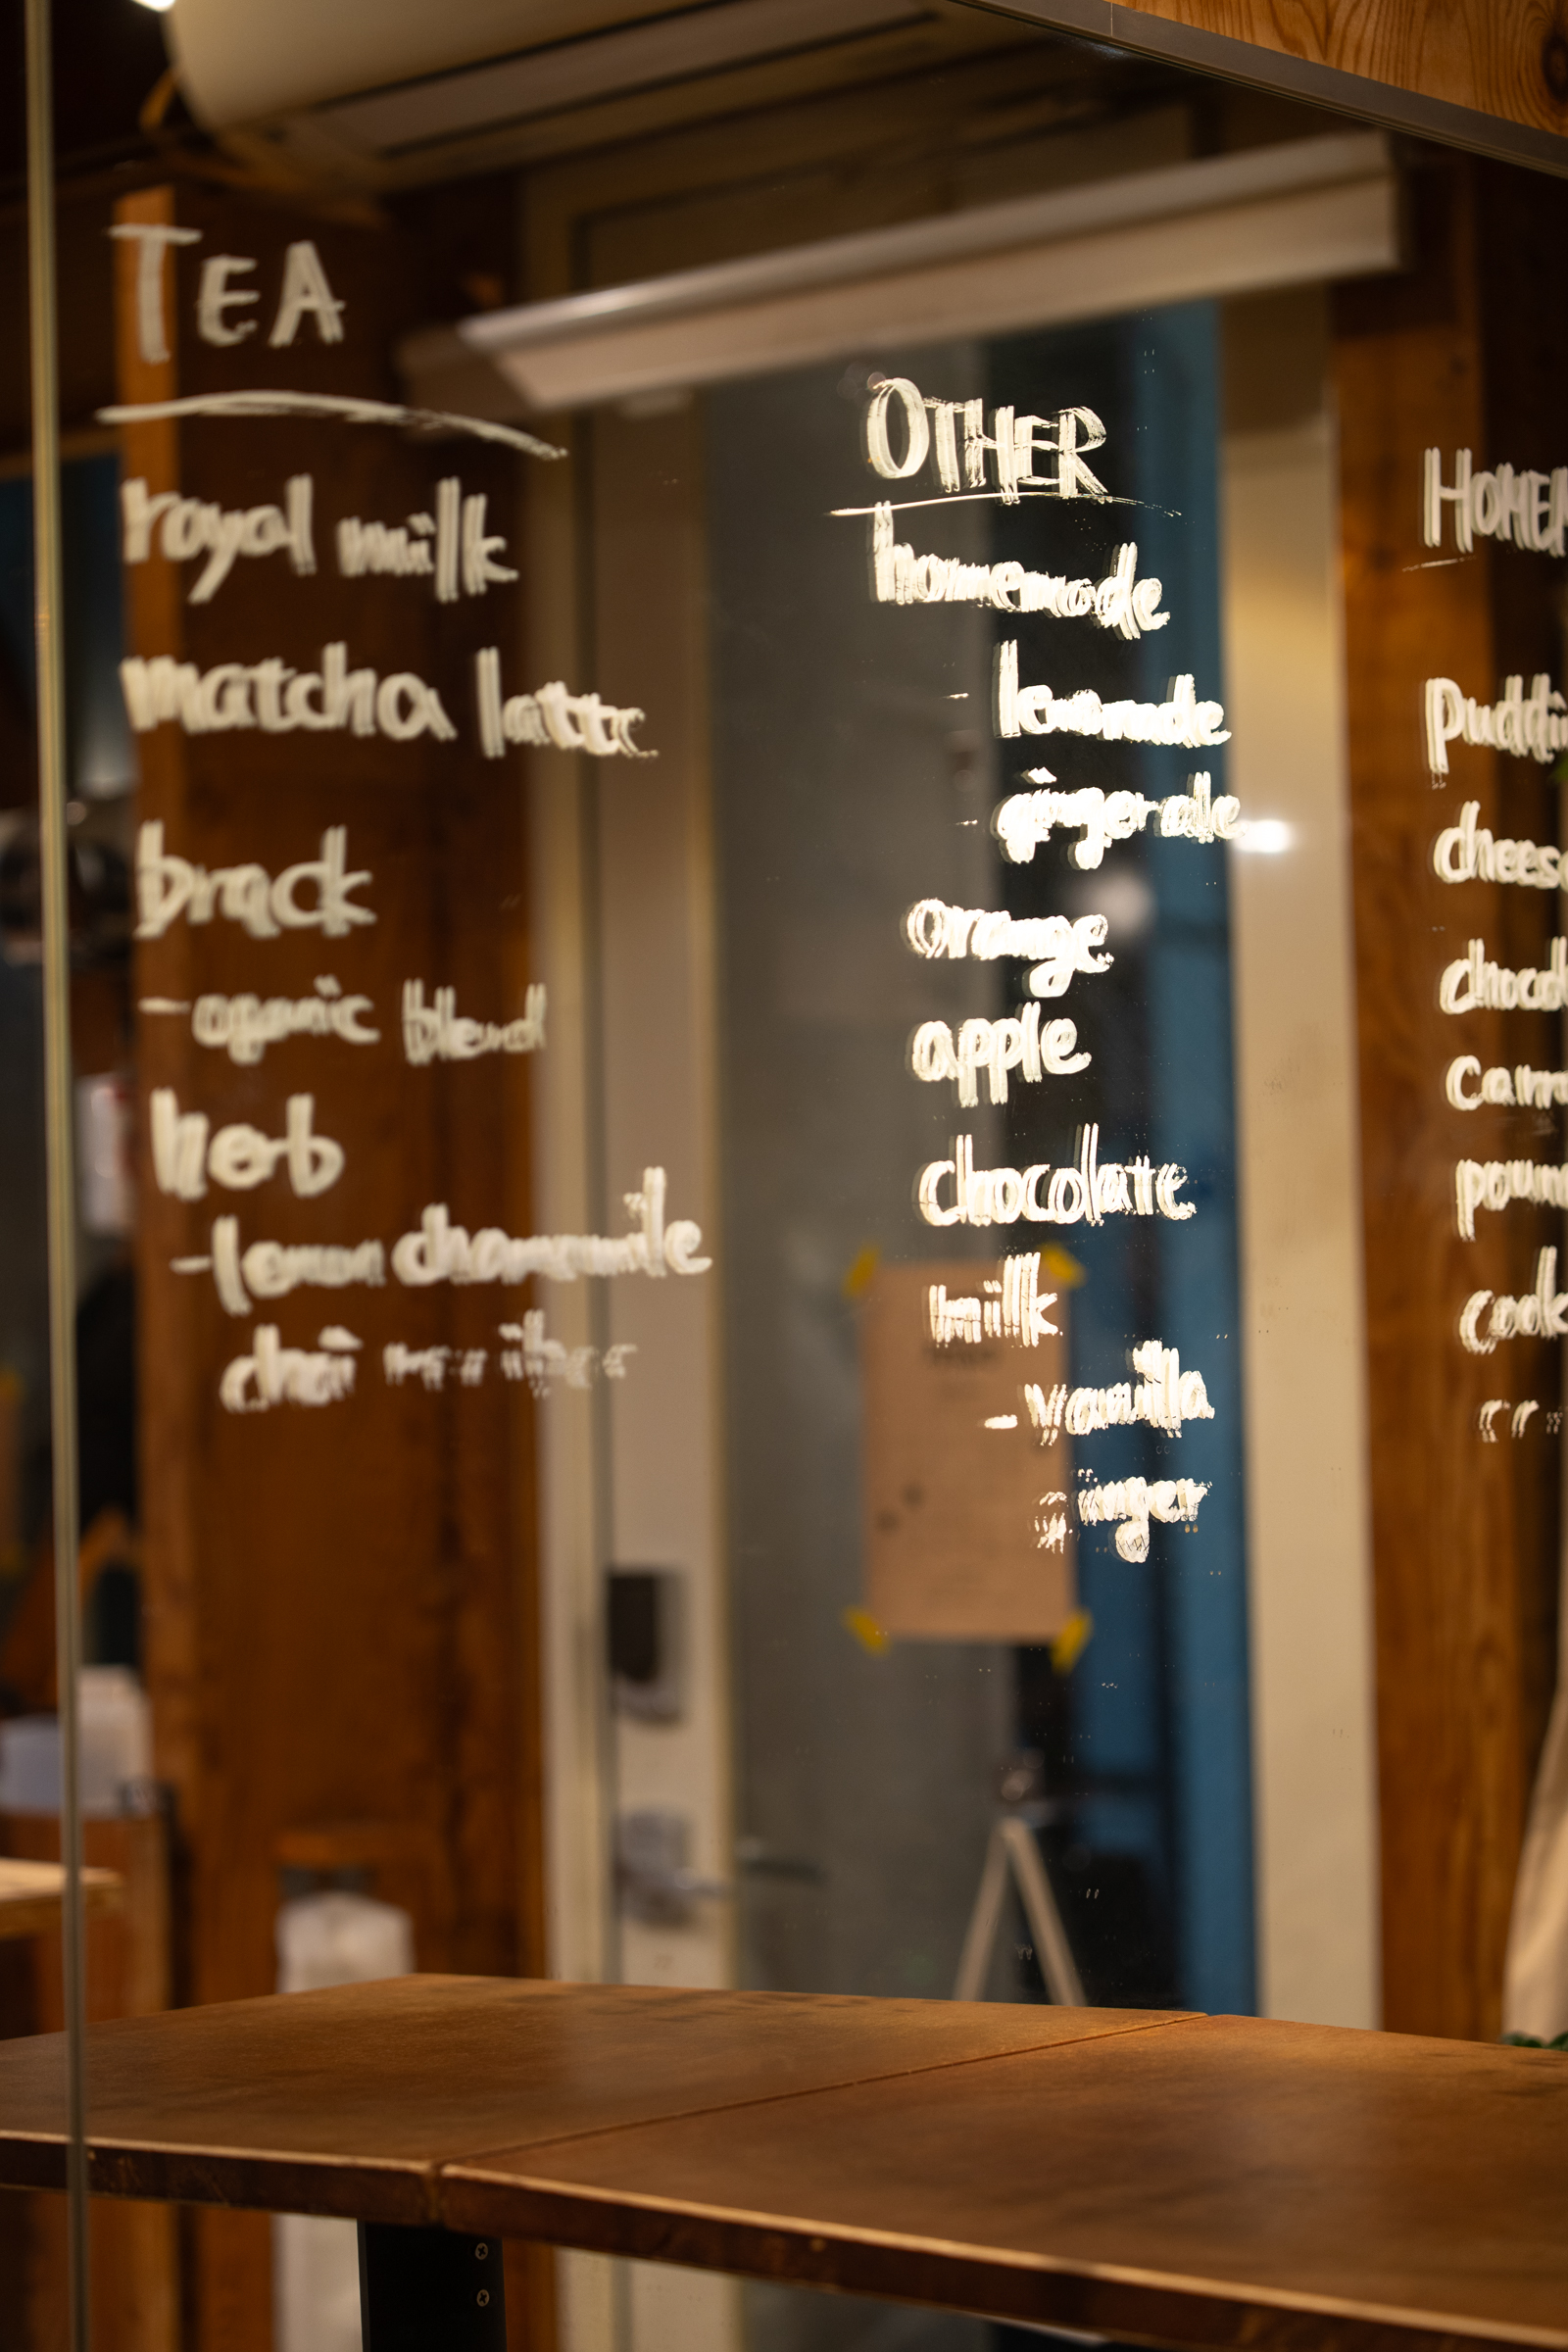 TEA
royal milk
matcha latte
brack
- oganic blend
heb
- lemon chamomile
chai
OTHER
homemade
- lemonade
- ginger ale
orange
apple
chocolate
milk
- vanilla
ginger
HOME
puddi
chees
chocol
carro
poun
cook